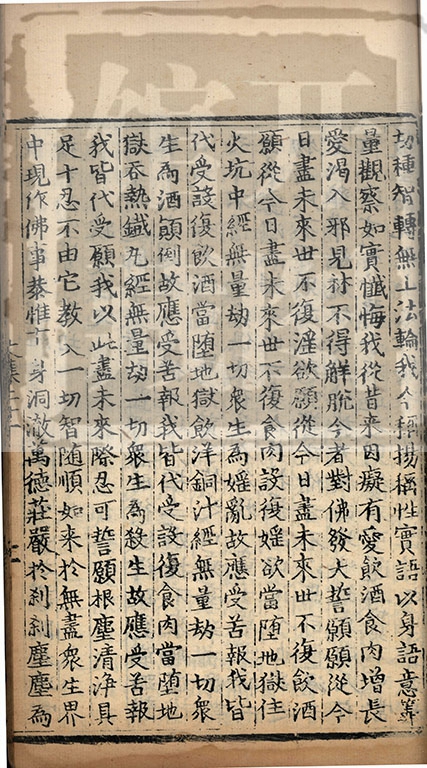 切種智轉無上法輪我今稱揚稱性實語以身語意筭
量觀察如實懺悔我從昔來因癡有愛飲酒食肉增長
愛渴入邪見林不得解脫今者對佛發大誓願願從今
日盡未來世不復淫欲願從今日盡未來世不復飲酒
願從今日盡未來世不復食肉設復婬欲當墮地獄住
火坑中經無量劫一切衆生為婬亂故應受苦報我皆
代受設復飲酒當墮地獄飲洋銅汁經無量劫一切衆
生為酒顛倒故應受苦報我皆代受設復食肉當墮地
獄吞熱鐵丸經無量劫一切衆生為殺生故應受苦報
我皆代受願我以此盡未來際忍可誓願根塵清淨具
足十忍不由它教入一切智随順如来於無盡衆生界
中現作佛事恭惟 身洞澈萬德莊嚴於刹刹塵塵為